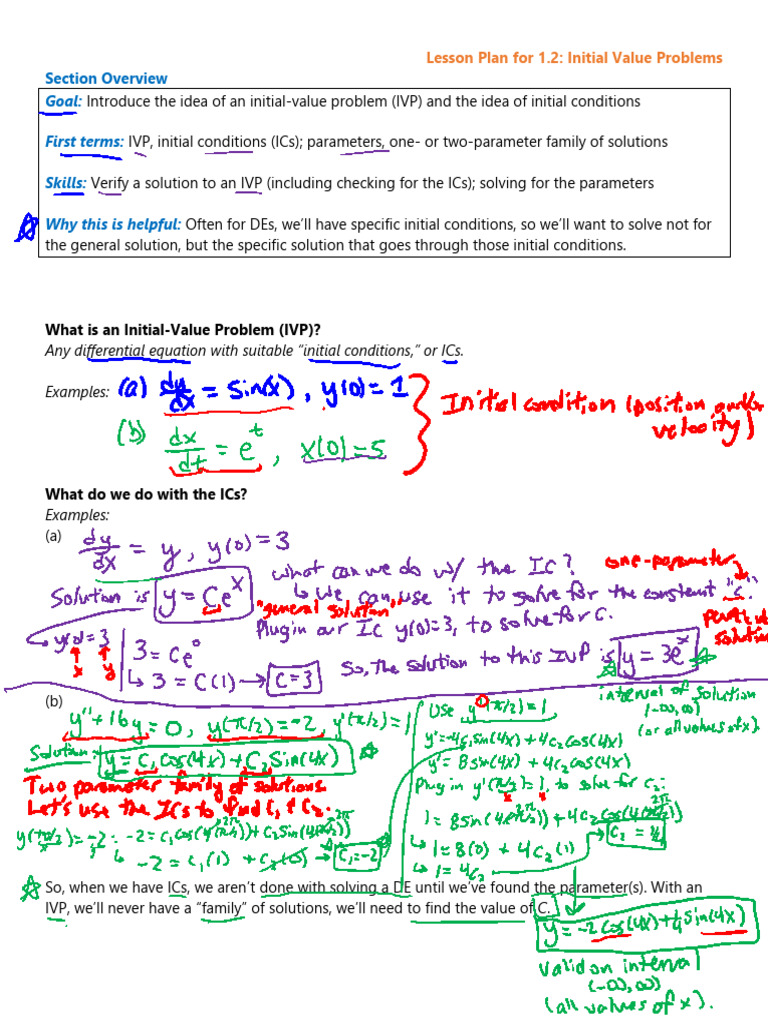 Lesson Plan for 1.2: Initial Value Problems
Section Overview
Goal: Introduce the idea of an initial-value problem (IVP) and the idea of initial conditions
First terms: IVP, initial conditions (ICs); parameters, one- or two-parameter family of solutions
Skills: Verify a solution to an IVP (including checking for the ICs); solving for the parameters
Why this is helpful: Often for DEs, we'll have specific initial conditions, so we'll want to solve not for
the general solution, but the specific solution that goes through those initial conditions.
What is an Initial-Value Problem (IVP)?
Any differential equation with suitable "initial conditions," or ICs.
Examples: (a) dy/dx = sin(x), y(0)=1
(b) dx/dt = e^t, x(0)=5
Initial condition (position and/or
velocity)
What do we do with the ICs?
Examples:
(a)
dy/dx = y, y(0)=3
Solution is y=Ce^x
"general solution"
What can we do w/ the IC?
↳ We can use it to solve for the constant "C".
one-parameter
Plug in our IC y(0)=3, to solve for C.
y(0)=3
x y
3=Ce^0
↳ 3=C(1) → C=3
So, the solution to this IVP is y=3e^x
solution
interval of solution
(-∞,∞)
(or all values of x).
(b)
y''+16y=0, y(π/2)=-2, y'(π/2)=1
Solution: y=C₁cos(4x)+C₂sin(4x)
Two parameter family of solutions.
Let's use the ICs to find C₁ & C₂.
y(π/2)=-2: -2=C₁cos(4(π/2))+C₂sin(4(π/2))
2π 2π
↳ -2=C₁(1)+C₂(0) → C₁=-2
Use y'(π/2)=1
y'=-4C₁sin(4x)+4C₂cos(4x)
y'=8sin(4x)+4C₂cos(4x)
Plug in y'(π/2)=1, to solve for C₂:
x y
1=8sin(4(π/2))+4C₂cos(4(π/2))
2π 2π
↳ 1=8(0)+4C₂(1)
↳ 1=4C₂
C₂=1/4
So, when we have ICs, we aren't done with solving a DE until we've found the parameter(s). With an
IVP, we'll never have a "family" of solutions, we'll need to find the value of C.
y=-2cos(4x)+1/4sin(4x)
valid on interval
(-∞,∞)
(all values of x).